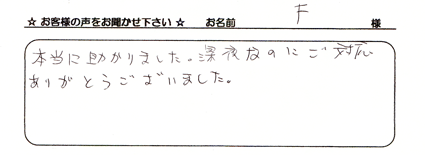 ☆ お客様の声をお聞かせ下さい ☆ お名前 F 様
本当に助かりました。深夜なのにご対応
ありがとうございました。